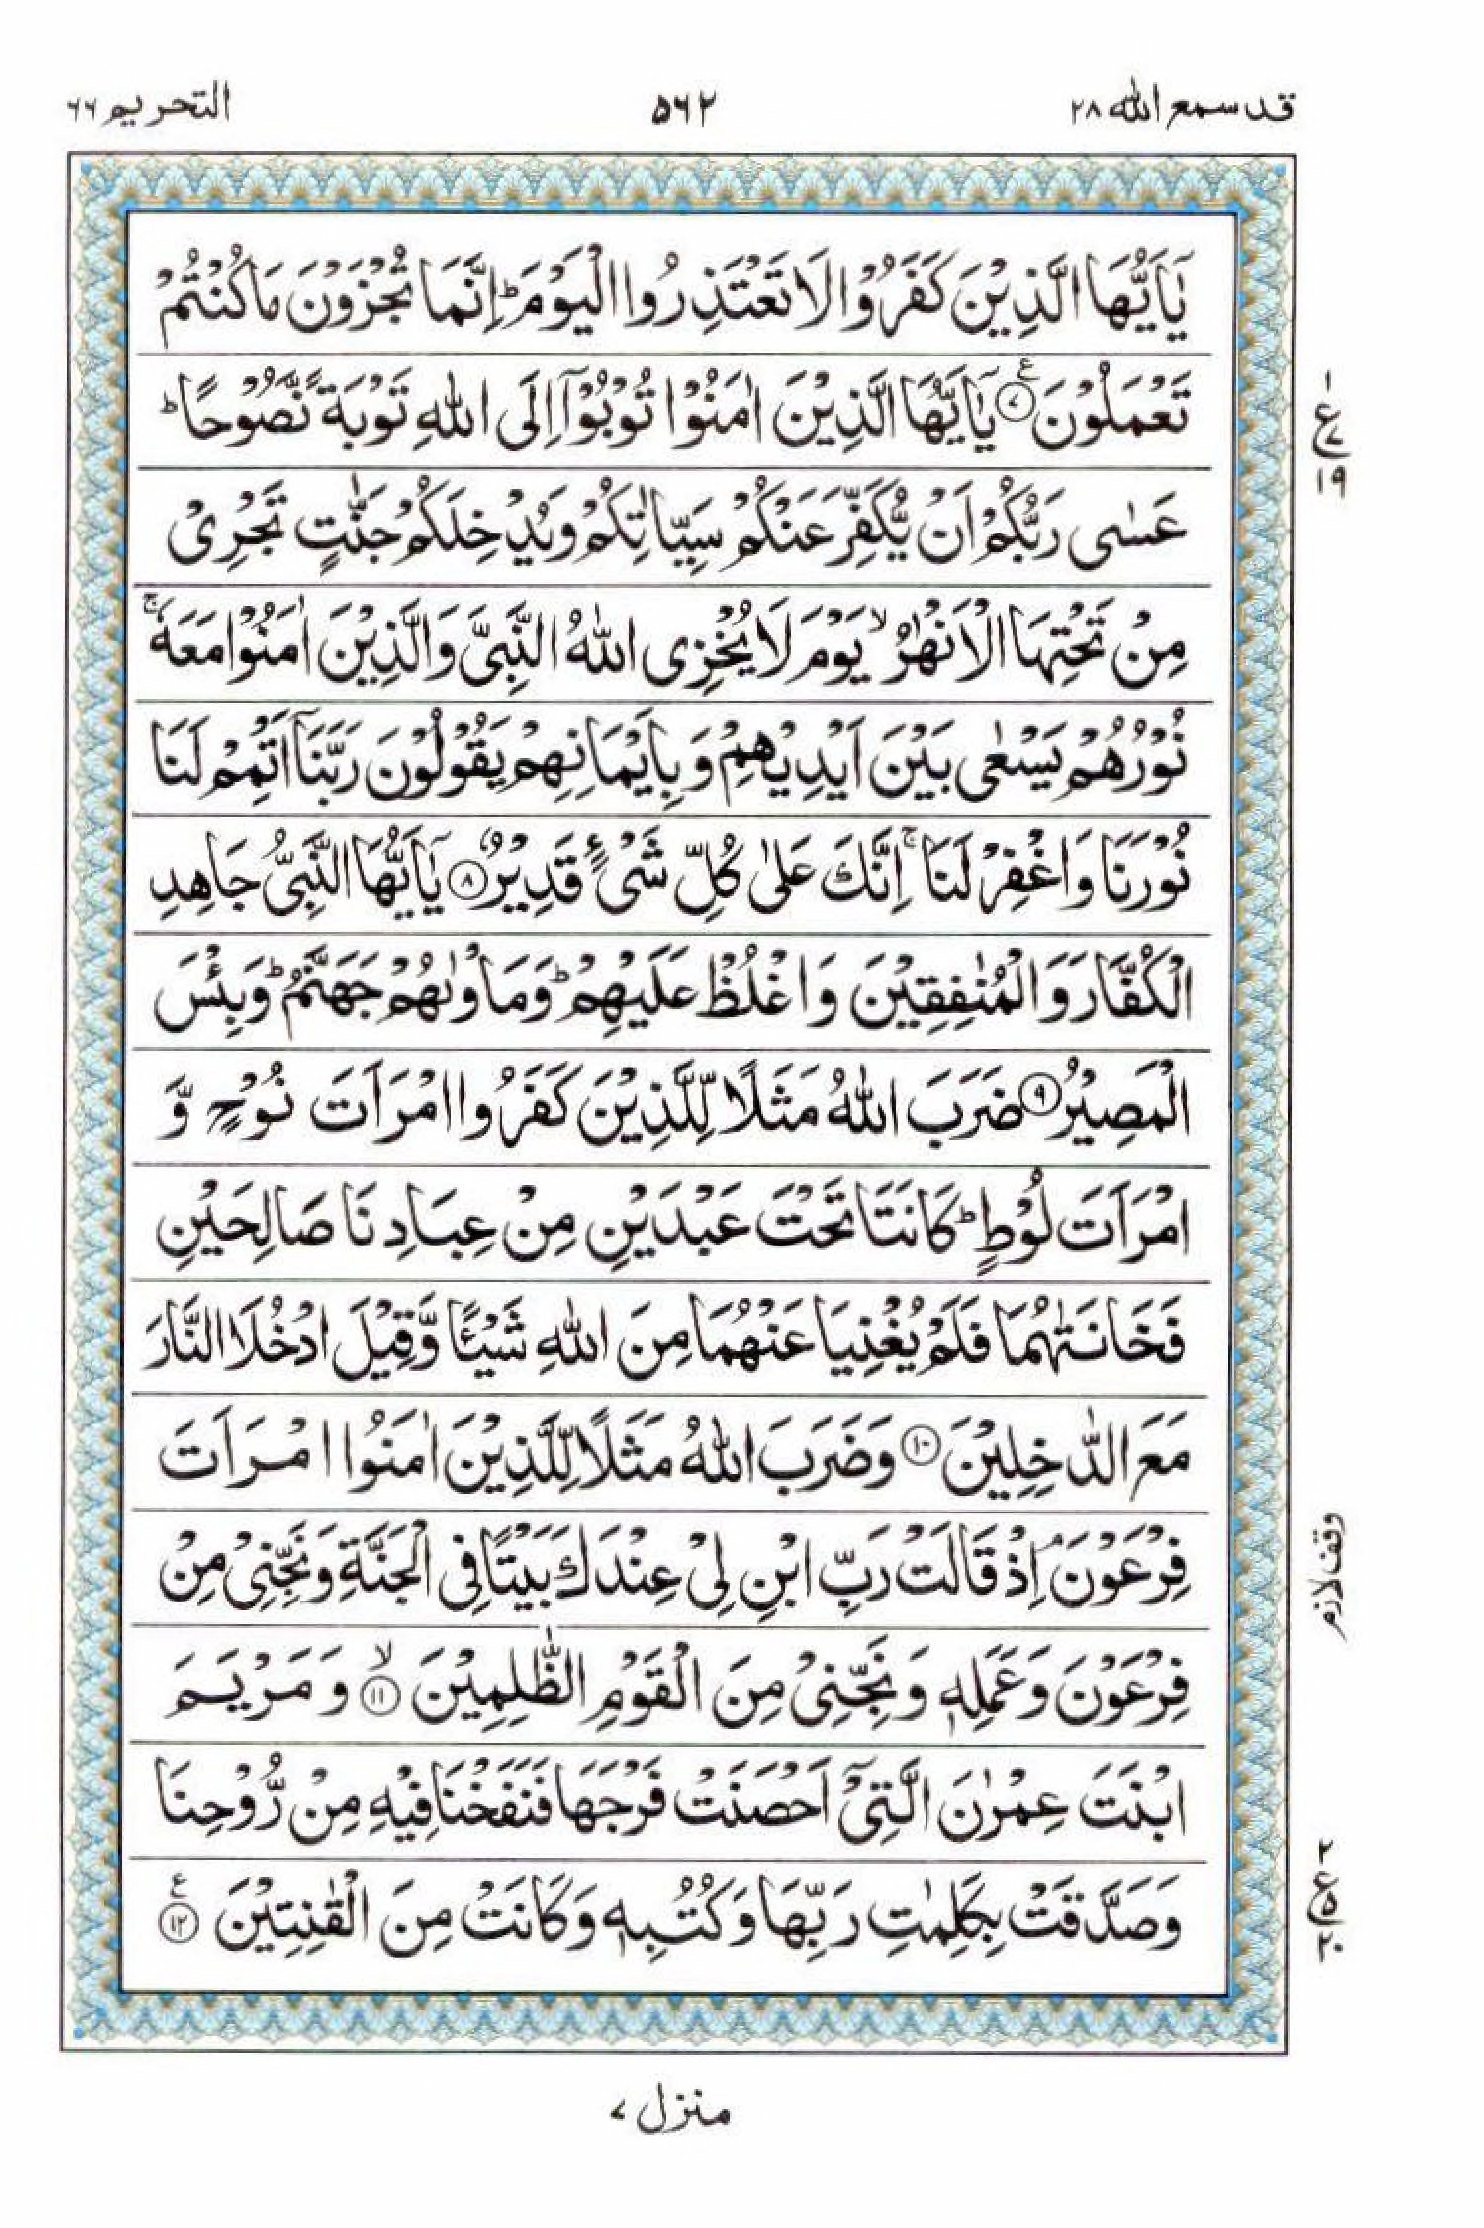 قد سمع الله ۲۸
۵۶۲
التحریم ۶۶
یٰۤاَیُّهَا الَّذِیْنَ كَفَرُوْا لَا تَعْتَذِرُوا الْیَوْمَ ؕ اِنَّمَا تُجْزَوْنَ مَا كُنْتُمْ
تَعْمَلُوْنَ ۧ﴿۷﴾ یٰۤاَیُّهَا الَّذِیْنَ اٰمَنُوْا تُوْبُوْۤا اِلَی اللّٰهِ تَوْبَةً نَّصُوْحًا ؕ
عَسٰی رَبُّكُمْ اَنْ یُّكَفِّرَ عَنْكُمْ سَیِّاٰتِكُمْ وَیُدْخِلَكُمْ جَنّٰتٍ تَجْرِیْ
مِنْ تَحْتِهَا الْاَنْهٰرُ ۙ یَوْمَ لَا یُخْزِی اللّٰهُ النَّبِیَّ وَالَّذِیْنَ اٰمَنُوْا مَعَهٗ ۚ
نُوْرُهُمْ یَسْعٰی بَیْنَ اَیْدِیْهِمْ وَبِاَیْمَانِهِمْ یَقُوْلُوْنَ رَبَّنَاۤ اَتْمِمْ لَنَا
نُوْرَنَا وَاغْفِرْ لَنَا ۚ اِنَّكَ عَلٰی كُلِّ شَیْءٍ قَدِیْرٌ ﴿۸﴾ یٰۤاَیُّهَا النَّبِیُّ جَاهِدِ
الْكُفَّارَ وَالْمُنٰفِقِیْنَ وَاغْلُظْ عَلَیْهِمْ ؕ وَمَاْوٰىهُمْ جَهَنَّمُ ؕ وَبِئْسَ
الْمَصِیْرُ ﴿۹﴾ ضَرَبَ اللّٰهُ مَثَلًا لِّلَّذِیْنَ كَفَرُوا امْرَاَتَ نُوْحٍ وَّ
امْرَاَتَ لُوْطٍ ؕ كَانَتَا تَحْتَ عَبْدَیْنِ مِنْ عِبَادِنَا صَالِحَیْنِ
فَخَانَتٰهُمَا فَلَمْ یُغْنِیَا عَنْهُمَا مِنَ اللّٰهِ شَیْـًٔا وَّقِیْلَ ادْخُلَا النَّارَ
مَعَ الدّٰخِلِیْنَ ﴿۱۰﴾ وَضَرَبَ اللّٰهُ مَثَلًا لِّلَّذِیْنَ اٰمَنُوا امْرَاَتَ
فِرْعَوْنَ ۘ اِذْ قَالَتْ رَبِّ ابْنِ لِیْ عِنْدَكَ بَیْتًا فِی الْجَنَّةِ وَنَجِّنِیْ مِنْ
فِرْعَوْنَ وَعَمَلِهٖ وَنَجِّنِیْ مِنَ الْقَوْمِ الظّٰلِمِیْنَ ۙ﴿۱۱﴾ وَمَرْیَمَ
ابْنَتَ عِمْرٰنَ الَّتِیْۤ اَحْصَنَتْ فَرْجَهَا فَنَفَخْنَا فِیْهِ مِنْ رُّوْحِنَا
وَصَدَّقَتْ بِكَلِمٰتِ رَبِّهَا وَكُتُبِهٖ وَكَانَتْ مِنَ الْقٰنِتِیْنَ ۧ﴿۱۲﴾
۱
ع ۷
۱۹
وقف لازم
۲
ع ۵
۲۰
منزل ۷